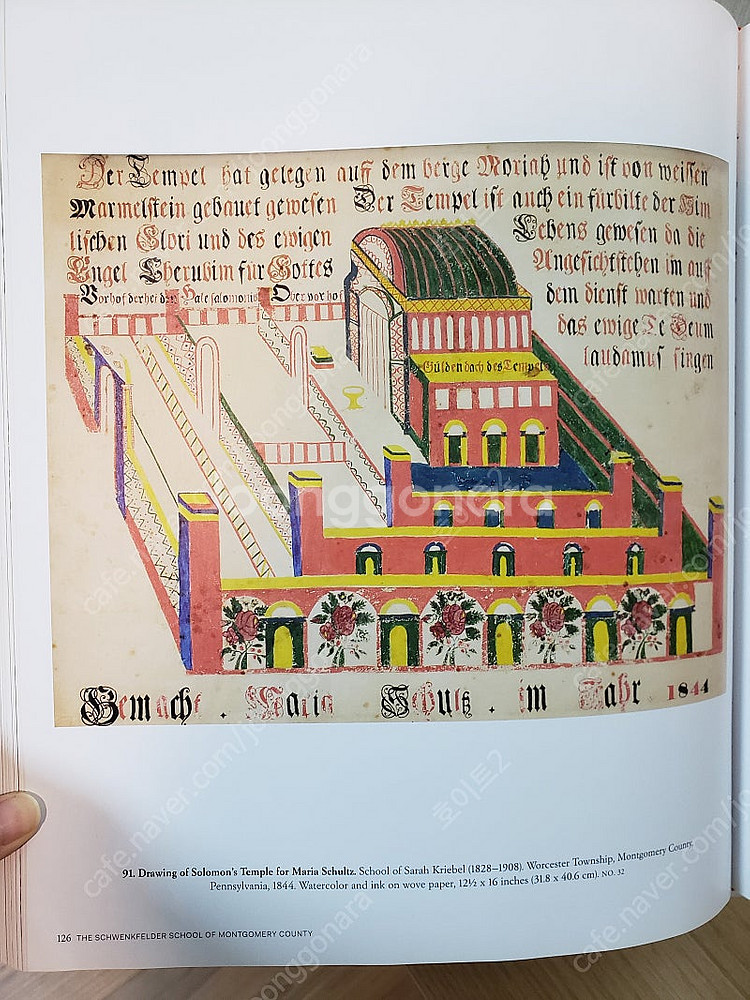 Der Tempel hat gelegen auff dem berge Moriah und ist von weissen
Marmelstein gebauet gewesen Der Tempel ist auch ein fürbilte der Him
lischen Glori und des ewigen Lebens gewesen da die
Engel Cherubim für Gottes Angesicht stehen im auf
Vorhof der hei den Hale salomonis Ober vor hof dem dienst warten und
das ewige Te Deum
laudamus singen
Gülden dach des Tempels
Gemacht . Maria Schulz . im Jahr 1844
91. Drawing of Solomon's Temple for Maria Schultz. School of Sarah Kriebel (1828–1908). Worcester Township, Montgomery County,
Pennsylvania, 1844. Watercolor and ink on wove paper, 12½ x 16 inches (31.8 x 40.6 cm). NO. 32
126 THE SCHWENKFELDER SCHOOL OF MONTGOMERY COUNTY
joonggonara
cafe.naver.com/jo
호이트2